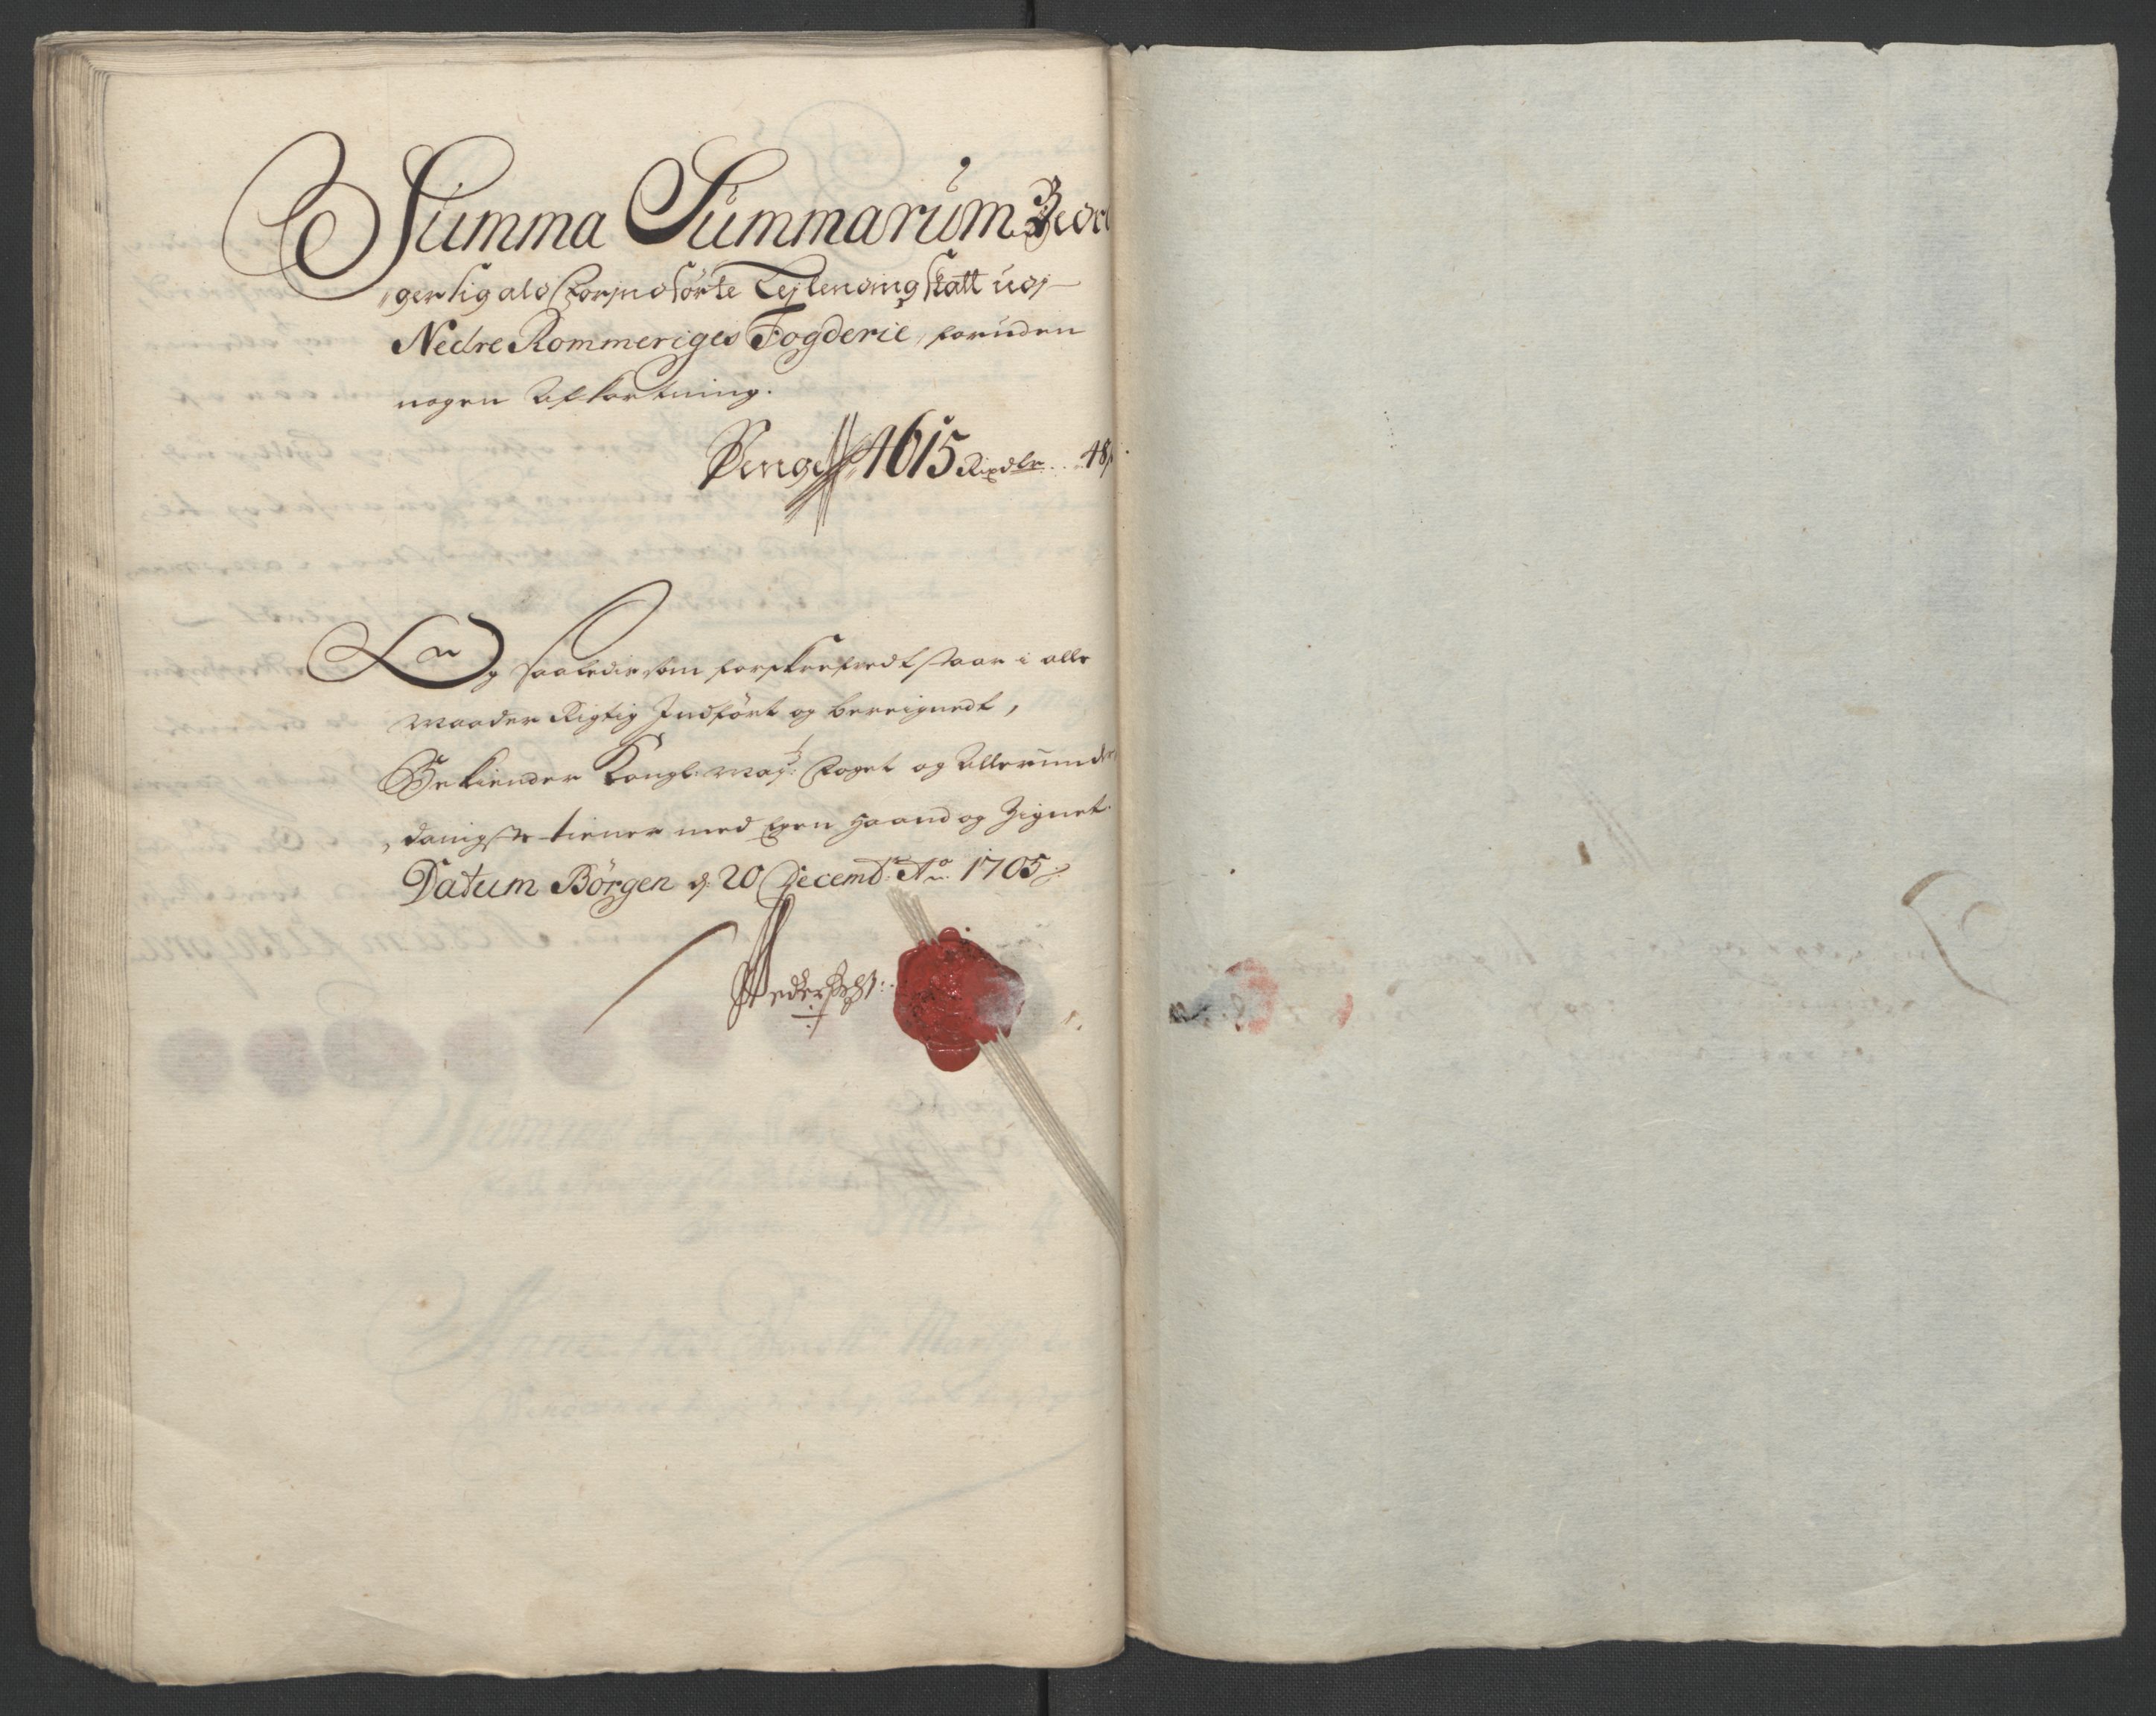 Summa Summarum Be
ger sig ald forindförte Leilending Skatt udj
Nedre Rommeriges Fogderie, foruden
nogen Afkortning.
Penge 4615 Rixdlr 48
Og saaledis som forskrefvedt staar i alle
maader Rigtig Indfört og bereignedt,
Bekiender Kongl: May: Foget og Allerunder
danigste tiener med Egen Haand og Zignet
Datum Börgen d. 20 Decembr. Ao 1705
Peder